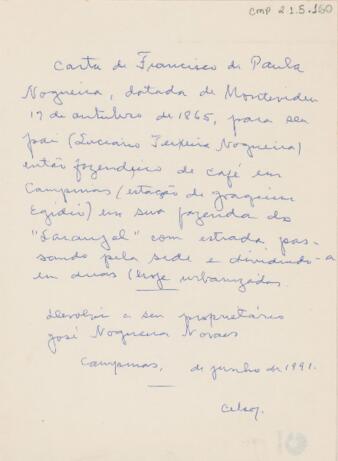 CMP 2.1.5.160
Carta de Francisco de Paula
Nogueira, datada de Montevideu
17 de outubro de 1865, para seu
pai (Luciano Teixeira Nogueira)
então fazendeiro de café em
Campinas (estação de Joaquim
Egidio) em sua fazenda do
"Laranjal" com estrada pas-
sando pela sede e dividindo-a
em duas (hoje urbanizadas.
Devolvi a seu proprietário
José Nogueira Novaes
Campinas, de junho de 1991.